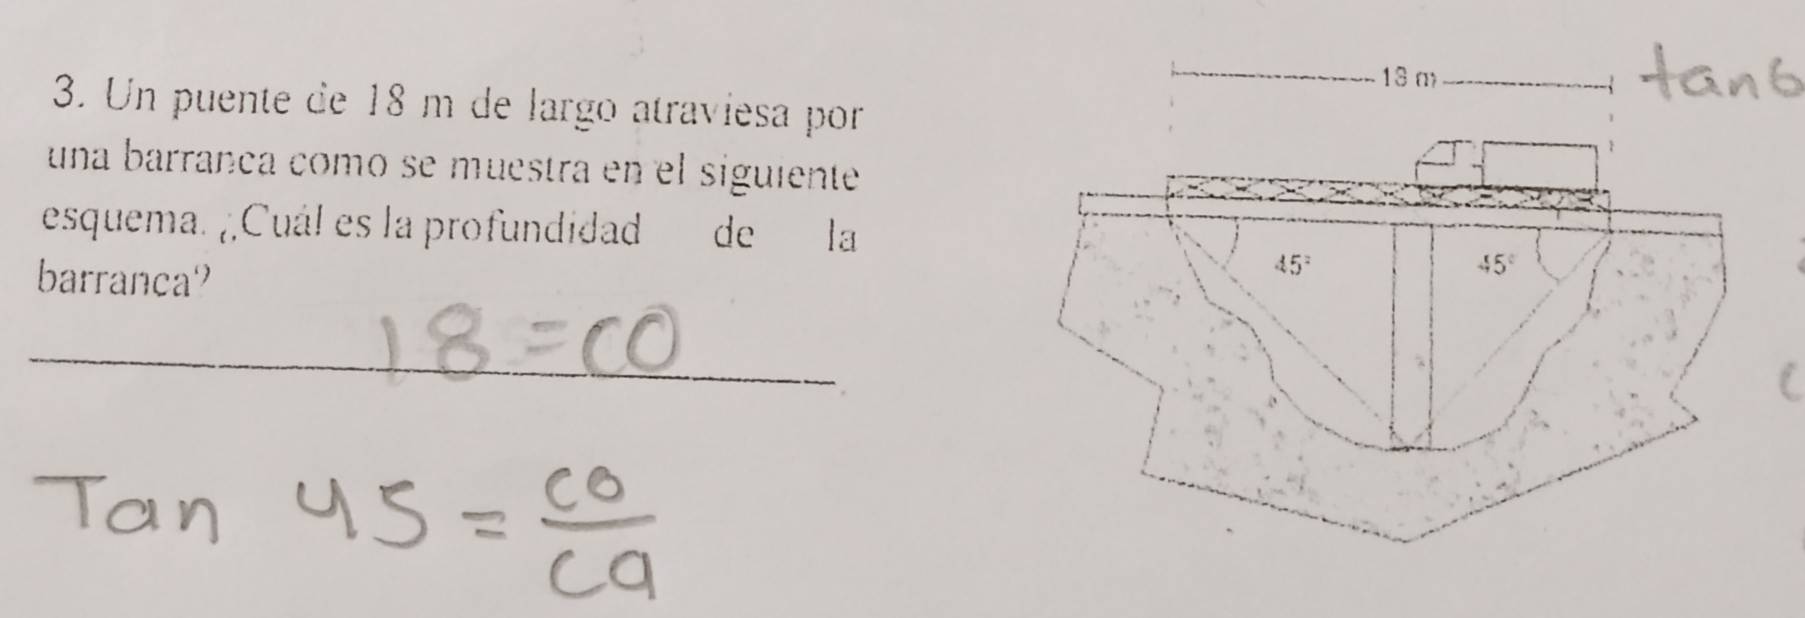 3. Un puente de 18 m de largo atraviesa por
una barranca como se muestra en el siguiente
esquema. ¿Cuál es la profundidad de la
barranca?
18 = CO
Tan 45 = co/ca
18 m
45°
45°
tan